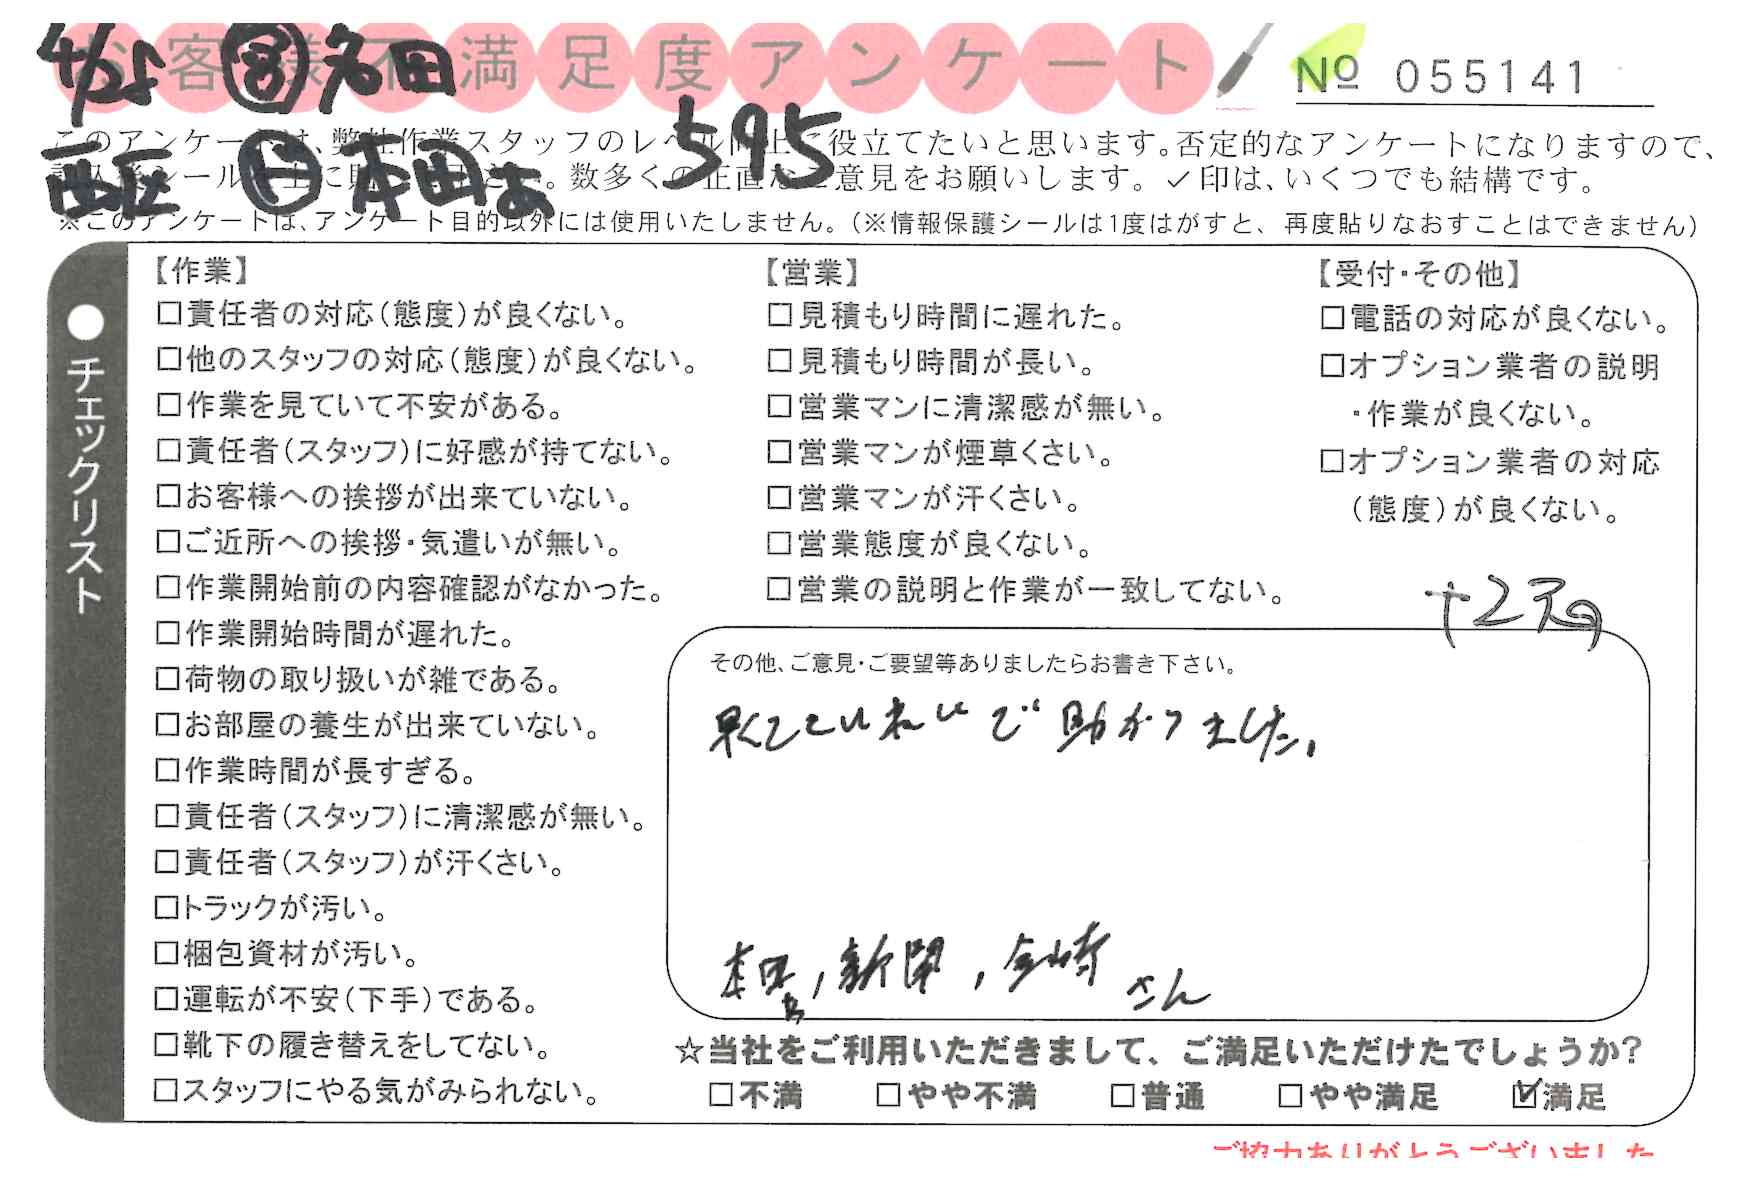 お客様不満足度アンケート
№ 055141
4/25 ㊂ 名田
595
西区 ト 本田あ
このアンケートは、弊社作業スタッフのレベル向上に役立てたいと思います。否定的なアンケートになりますので、
シール に 。数多くの正直なご意見をお願いします。✓印は、いくつでも結構です。
※このアンケートは、アンケート目的以外には使用いたしません。(※情報保護シールは1度はがすと、再度貼りなおすことはできません)
●チェックリスト
【作業】
□責任者の対応(態度)が良くない。
□他のスタッフの対応(態度)が良くない。
□作業を見ていて不安がある。
□責任者(スタッフ)に好感が持てない。
□お客様への挨拶が出来ていない。
□ご近所への挨拶・気遣いが無い。
□作業開始前の内容確認がなかった。
□作業開始時間が遅れた。
□荷物の取り扱いが雑である。
□お部屋の養生が出来ていない。
□作業時間が長すぎる。
□責任者(スタッフ)に清潔感が無い。
□責任者(スタッフ)が汗くさい。
□トラックが汚い。
□梱包資材が汚い。
□運転が不安(下手)である。
□靴下の履き替えをしてない。
□スタッフにやる気がみられない。
【営業】
□見積もり時間に遅れた。
□見積もり時間が長い。
□営業マンに清潔感が無い。
□営業マンが煙草くさい。
□営業マンが汗くさい。
□営業態度が良くない。
□営業の説明と作業が一致してない。
【受付・その他】
□電話の対応が良くない。
□オプション業者の説明
・作業が良くない。
□オプション業者の対応
(態度)が良くない。
その他、ご意見・ご要望等ありましたらお書き下さい。
早くてていねいで助かりました。
本田あ, 新開, 金崎 さん
☆当社をご利用いただきまして、ご満足いただけたでしょうか?
□不満 □やや不満 □普通 □やや満足 ☑満足
ご協力ありがとうございました